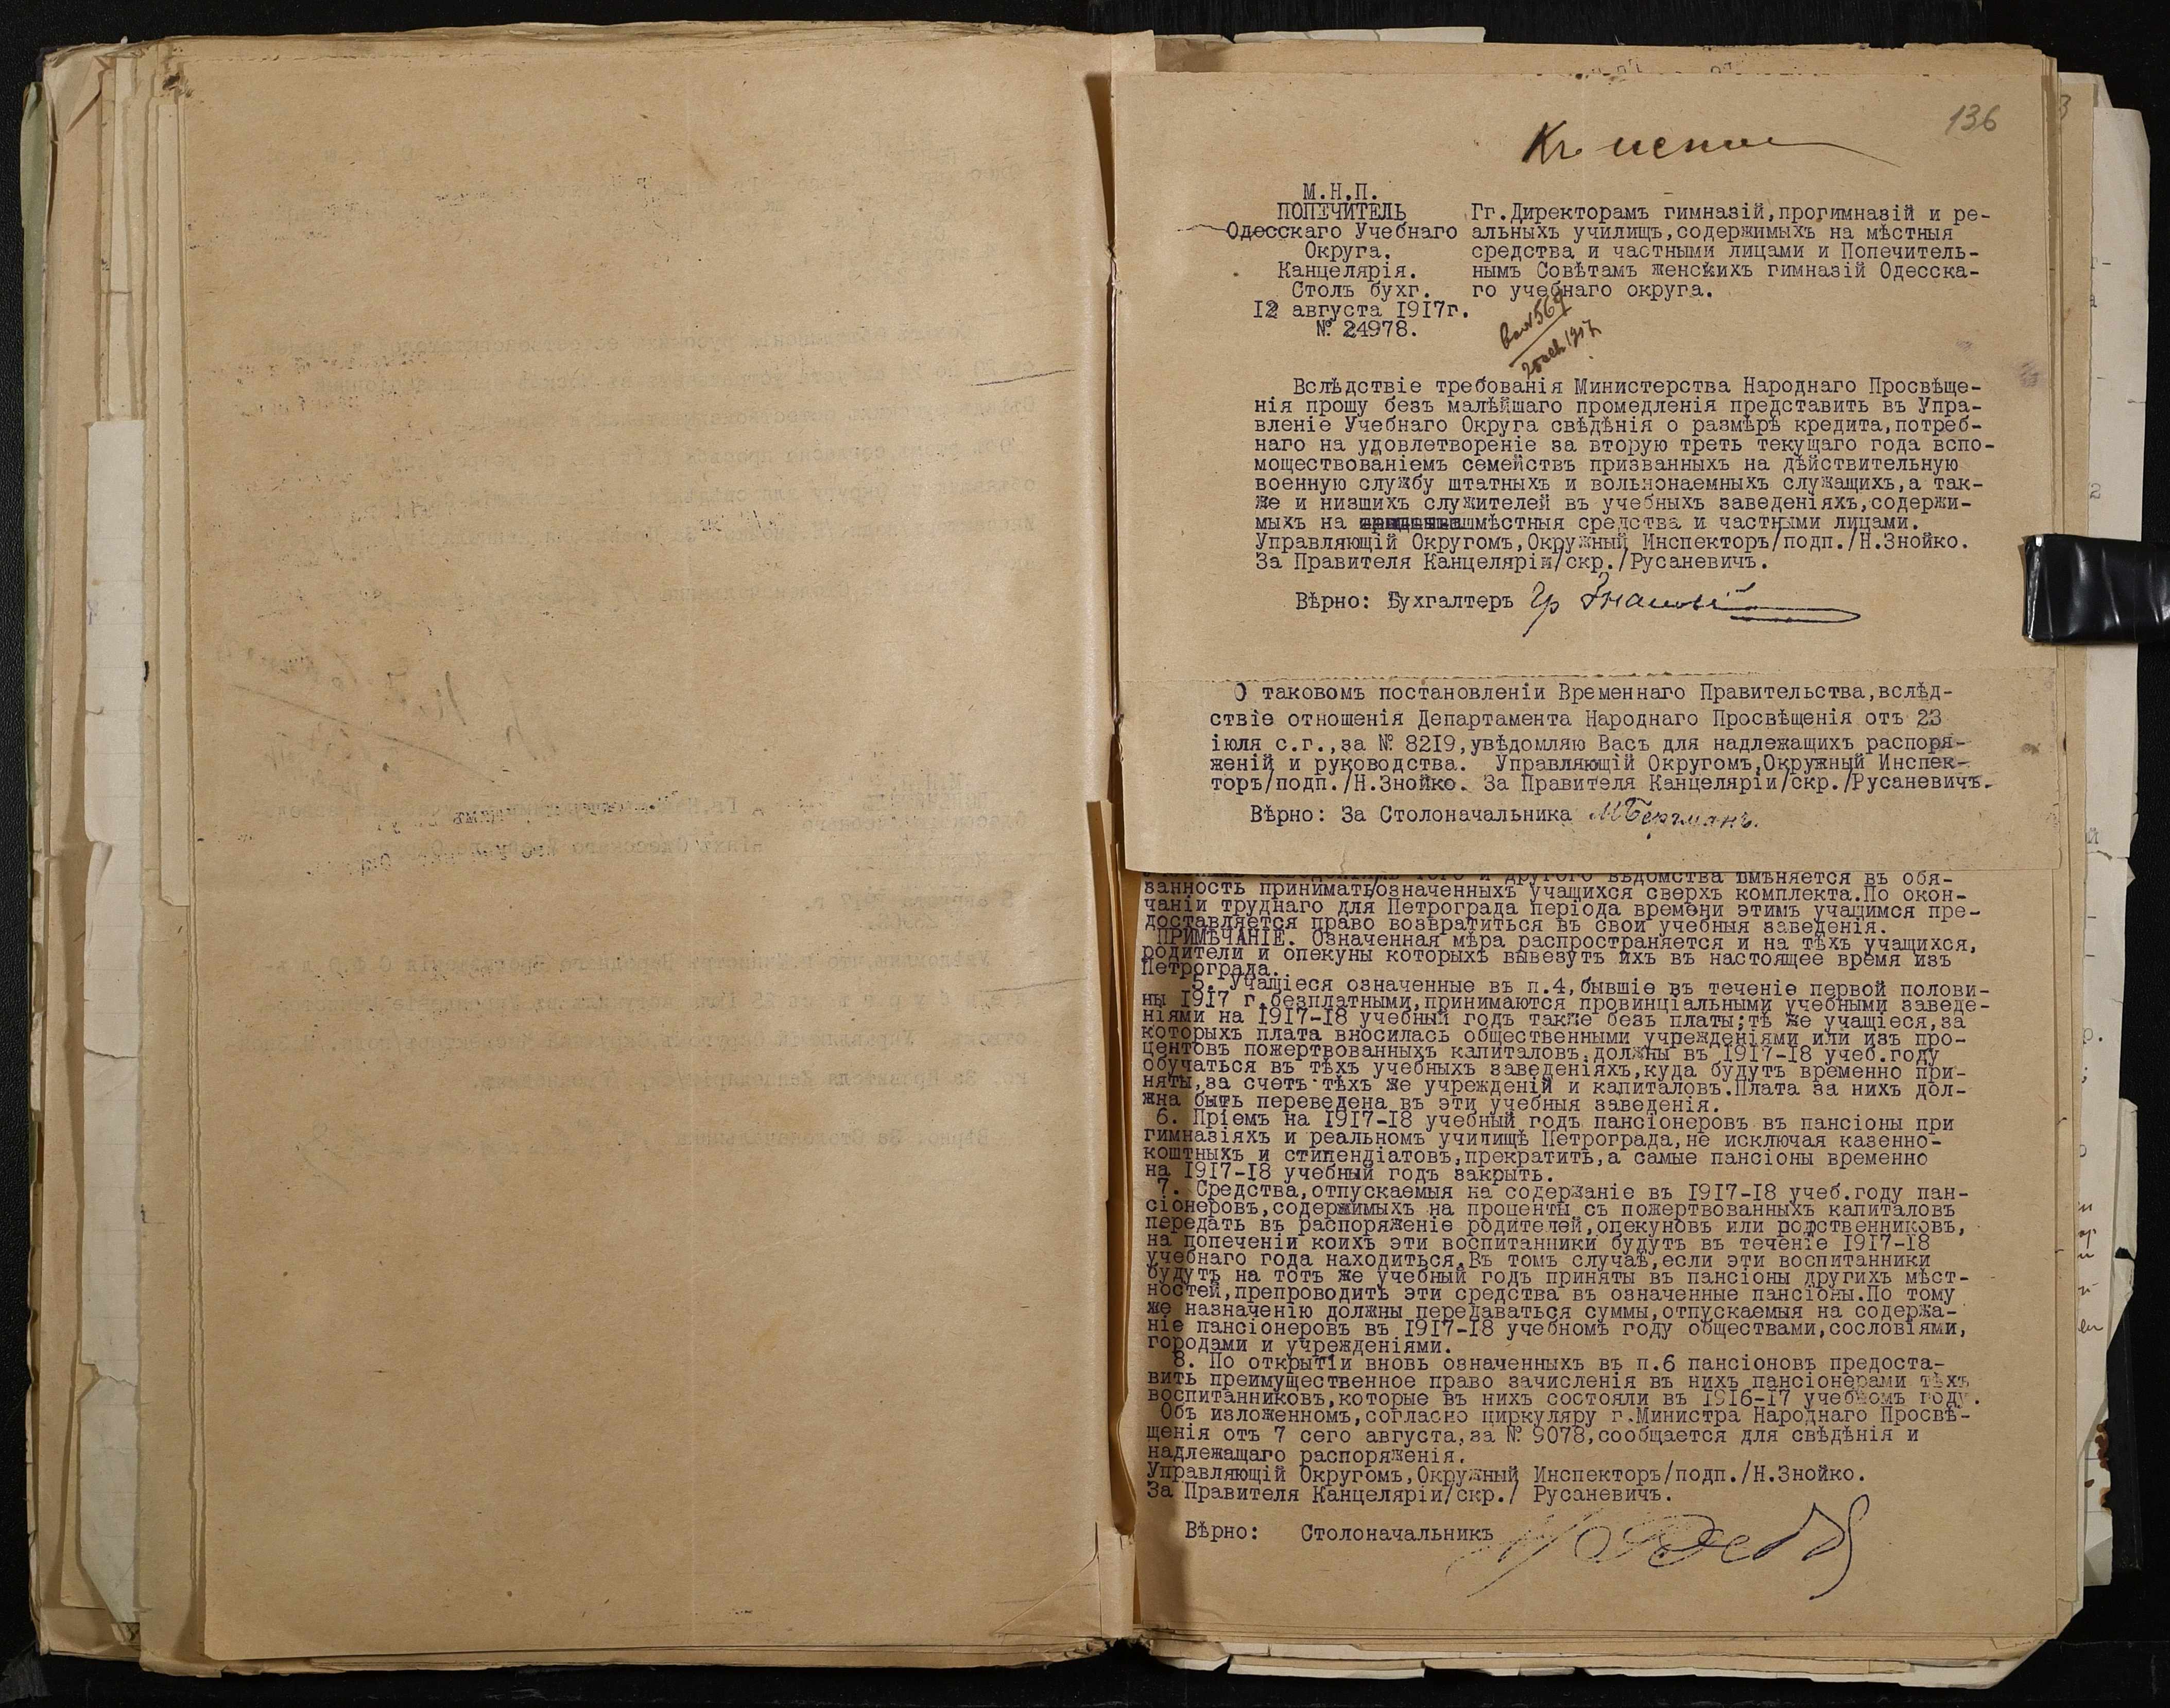 136
Къ исполн
М.Н.П.
ПОПЕЧИТЕЛЬ
Одесскаго Учебнаго
Округа.
Канцелярія.
Столъ бухг.
12 августа 1917г.
№ 24978.
Гг.Директорамъ гимназій,прогимназій и ре-
альныхъ училищъ,содержимыхъ на мѣстныя
средства и частными лицами и Попечитель-
нымъ Совѣтамъ женскихъ гимназій Одесска-
го учебнаго округа.
Вслѣдствіе требованія Министерства Народнаго Просвѣще-
нія прошу безъ малѣйшаго промедленія представить въ Упра-
вленіе Учебнаго Округа свѣдѣнія о размѣрѣ кредита,потреб-
наго на удовлетвореніе за вторую треть текущаго года вспо-
моществованіемъ семействъ призванныхъ на дѣйствительную
военную службу штатныхъ и вольнонаемныхъ служащихъ,а так-
же и низшихъ служителей въ учебныхъ заведеніяхъ,содержи-
мыхъ на мѣстныя средства и частными лицами.
Управляющій Округомъ,Окружный Инспекторъ/подп./Н.Знойко.
За Правителя Канцеляріи/скр./Русаневичъ.
Вѣрно: Бухгалтеръ
О таковомъ постановленіи Временнаго Правительства,вслѣд-
ствіе отношенія Департамента Народнаго Просвѣщенія отъ 23
іюля с.г.,за № 8219,увѣдомляю Васъ для надлежащихъ распоря-
женій и руководства. Управляющій Округомъ,Окружный Инспек-
торъ/подп./Н.Знойко. За Правителя Канцеляріи/скр./Русаневичъ.
Вѣрно: За Столоначальника МБергманъ.
того и другого вѣдомства вмѣняется въ обя-
занность принимать/означенныхъ учащихся сверхъ комплекта.По окон-
чаніи труднаго для Петрограда періода времени этимъ учащимся пре-
доставляется право возвратиться въ свои учебныя заведенія.
ПРИМѢЧАНІЕ. Означенная мѣра распространяется и на тѣхъ учащихся,
родители и опекуны которыхъ вывезутъ ихъ въ настоящее время изъ
Петрограда.
5. Учащіеся означенные въ п.4,бывшіе въ теченіе первой полови-
ны 1917 г.безплатными,принимаются провинціальными учебными заведе-
ніями на 1917-18 учебный годъ также безъ платы;тѣ же учащіеся,за
которыхъ плата вносилась общественными учрежденіями или изъ про-
центовъ пожертвованныхъ капиталовъ,должны въ 1917-18 учеб.году
обучаться въ тѣхъ учебныхъ заведеніяхъ,куда будутъ временно при-
няты,за счетъ тѣхъ же учрежденій и капиталовъ.Плата за нихъ дол-
жна быть переведена въ эти учебныя заведенія.
6. Пріемъ на 1917-18 учебный годъ пансіонеровъ въ пансіоны при
гимназіяхъ и реальномъ училищѣ Петрограда,не исключая казенно-
коштныхъ и стипендіатовъ,прекратить,а самые пансіоны временно
на 1917-18 учебный годъ закрыть.
7. Средства,отпускаемыя на содержаніе въ 1917-18 учеб.году пан-
сіонеровъ,содержимыхъ на проценты съ пожертвованныхъ капиталовъ
передать въ распоряженіе родителей,опекуновъ или родственниковъ,
на попеченіи коихъ эти воспитанники будутъ въ теченіе 1917-18
учебнаго года находиться.Въ томъ случаѣ,если эти воспитанники
будутъ на тотъ же учебный годъ приняты въ пансіоны другихъ мѣст-
ностей,препроводить эти средства въ означенные пансіоны.По тому
же назначенію должны передаваться суммы,отпускаемыя на содержа-
ніе пансіонеровъ въ 1917-18 учебномъ году обществами,сословіями,
городами и учрежденіями.
8. По открытіи вновь означенныхъ въ п.6 пансіоновъ предоста-
вить преимущественное право зачисленія въ нихъ пансіонерами тѣхъ
воспитанниковъ,которые въ нихъ состояли въ 1916-17 учебномъ году.
Объ изложенномъ,согласно циркуляру г.Министра Народнаго Просвѣ-
щенія отъ 7 сего августа,за № 9078,сообщается для свѣдѣнія и
надлежащаго распоряженія.
Управляющій Округомъ,Окружный Инспекторъ/подп./Н.Знойко.
За Правителя Канцеляріи/скр./ Русаневичъ.
Вѣрно: Столоначальникъ